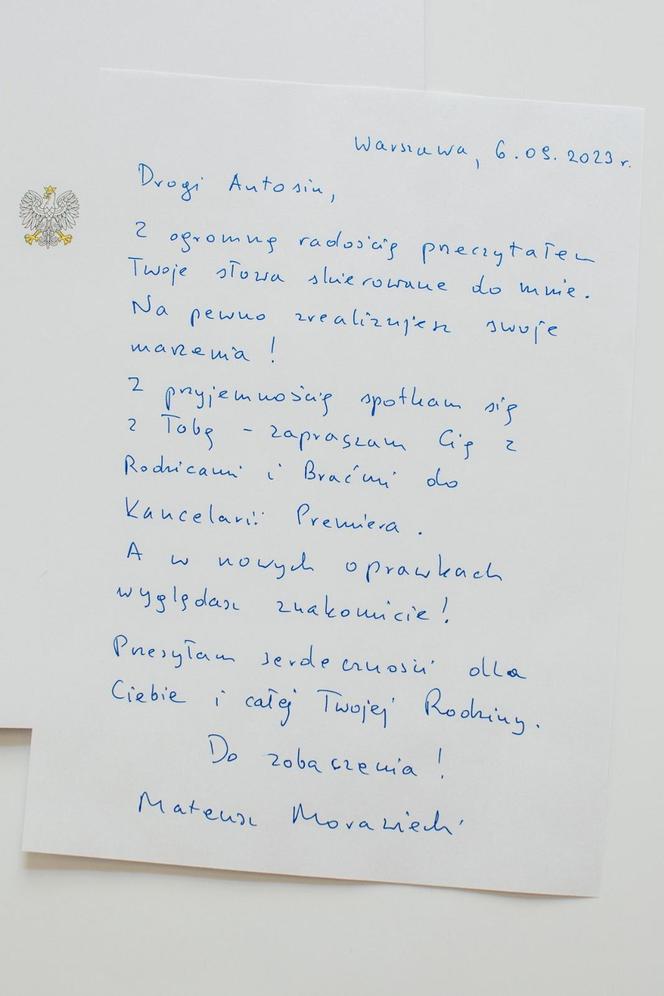 Warszawa, 6.09.2023 r.
Drogi Antosiu,
Z ogromną radością przeczytałem
Twoje słowa skierowane do mnie.
Na pewno zrealizujesz swoje
marzenia!
Z przyjemnością spotkam się
z Tobą - zapraszam Cię z
Rodzicami i Braćmi do
Kancelarii Premiera.
A w nowych oprawkach
wyglądasz znakomicie!
Przesyłam serdeczności dla
Ciebie i całej Twojej Rodziny.
Do zobaczenia!
Mateusz Morawiecki